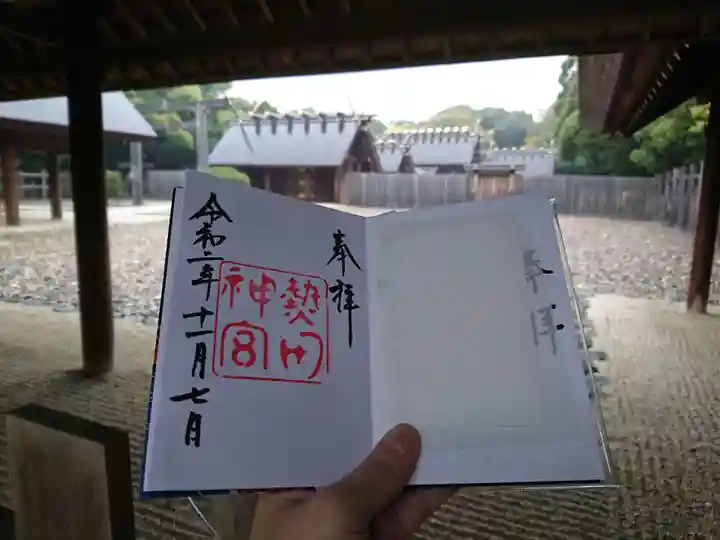 奉拝
奉拝
熱田
神宮
令和二年十一月七日